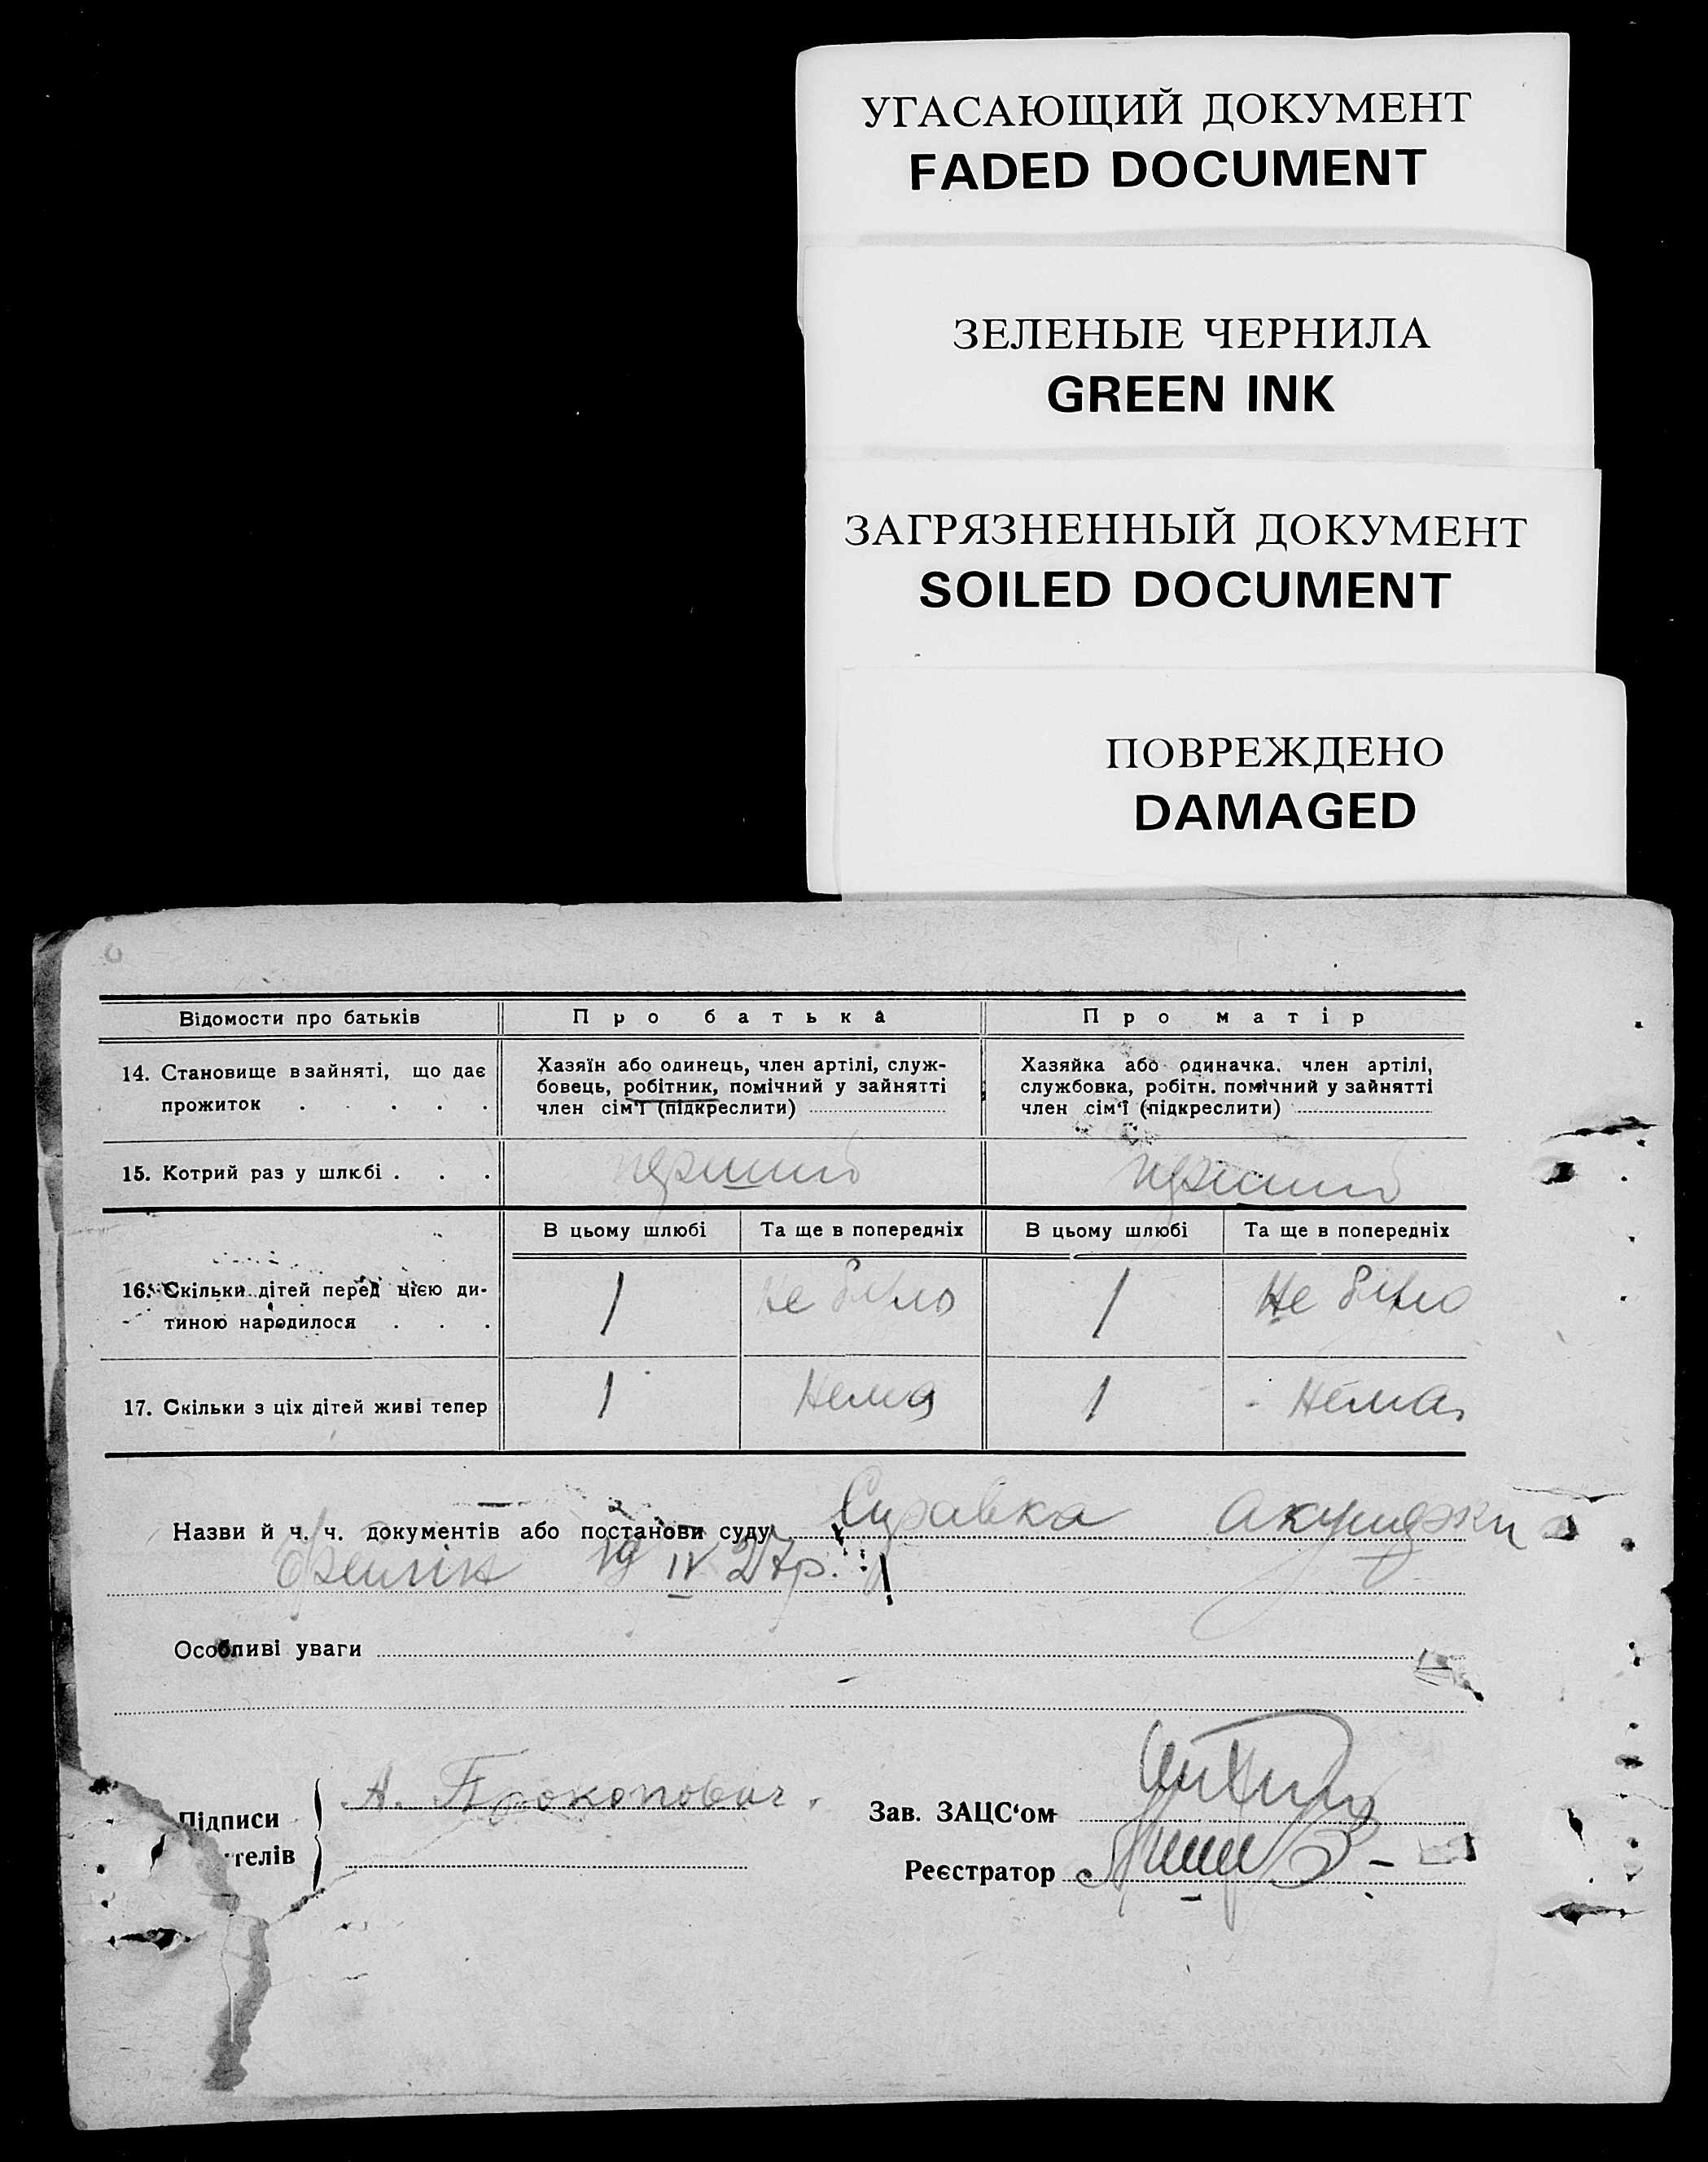 УГАСАЮЩИЙ ДОКУМЕНТ
FADED DOCUMENT
ЗЕЛЕНЫЕ ЧЕРНИЛА
GREEN INK
ЗАГРЯЗНЕННЫЙ ДОКУМЕНТ
SOILED DOCUMENT
ПОВРЕЖДЕНО
DAMAGED
Відомости про батьків Про батька Про матір
14. Становище в зайняті, що дає прожиток . . . . .
Хазяїн або одинець, член артілі, служ-
бовець, робітник, помічний у зайнятті
член сім'ї (підкреслити)
Хазяйка або одиначка, член артілі,
службовка, робітн. помічний у зайнятті
член сім'ї (підкреслити)
15. Котрий раз у шлюбі . . . перший перший
В цьому шлюбі Та ще в попередніх В цьому шлюбі Та ще в попередніх
16. Скільки дітей перед цією ди-
тиною народилося . . . 1 не було 1 не було
17. Скільки з ціх дітей живі тепер 1 нема 1 нема
Назви й ч. ч. документів або постанови суду Справка акушерки
19 IV 27р.
Особливі уваги
Підписи А. Прокопович. Зав. ЗАЦС'ом
телів Реєстратор